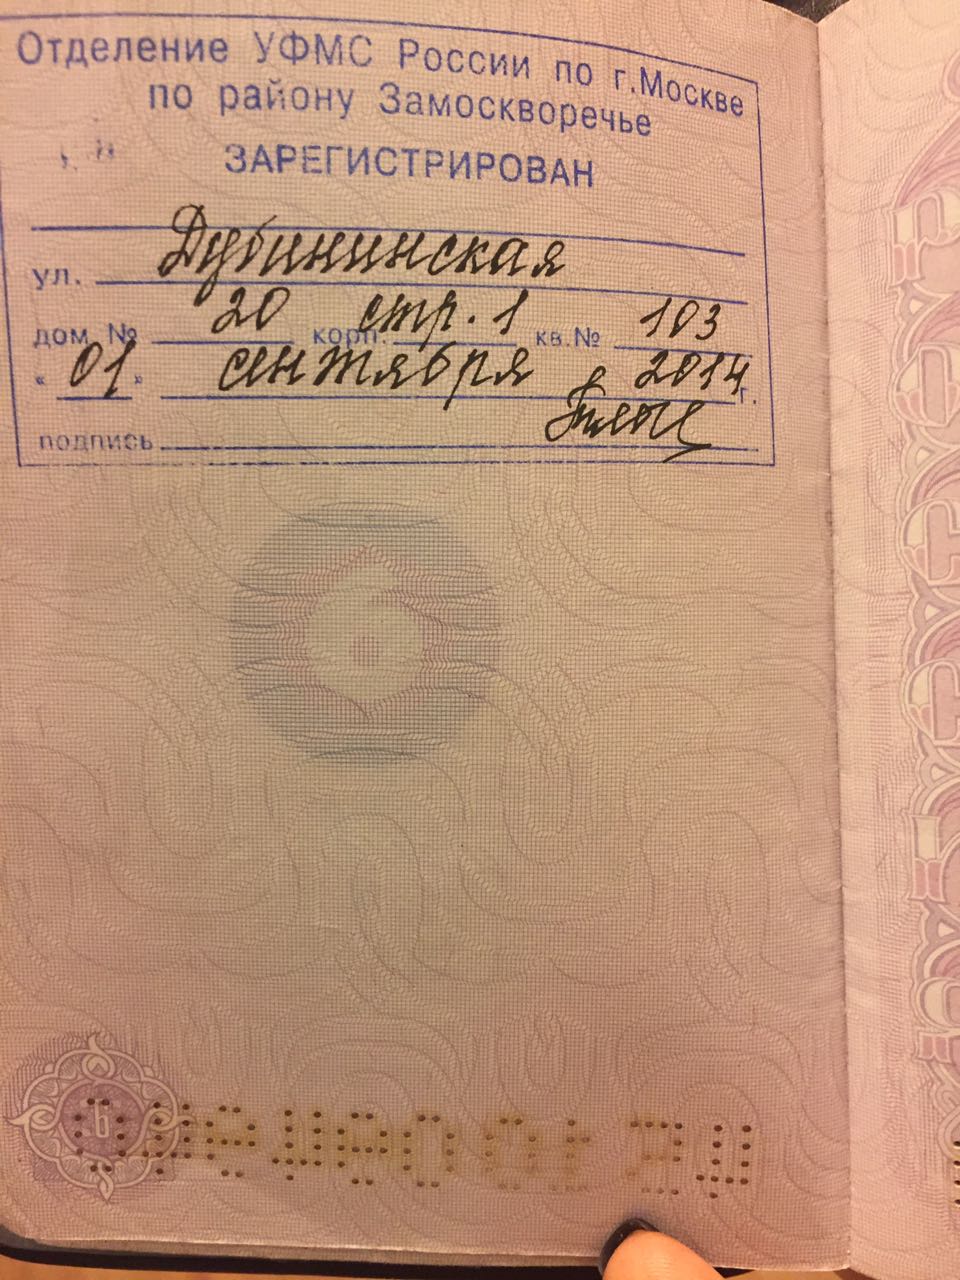 Отделение УФМС России по г.Москве
по району Замоскворечье
ЗАРЕГИСТРИРОВАН
ул. Дубининская
дом № 20 корп. стр. 1 кв.№ 103
«01» сентября 2014 г.
подпись
6